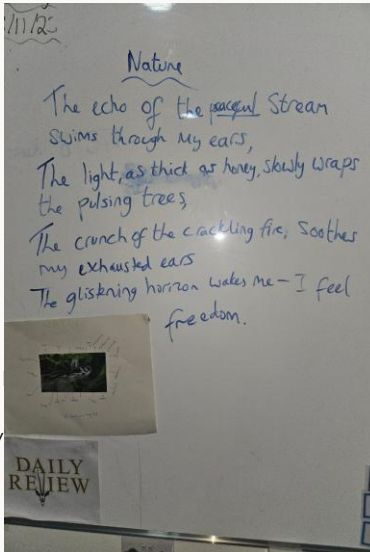 /11/2
Nature
The echo of the peaceful Stream
swims through my ears,
The light, as thick as honey, slowly wraps
the pulsing trees,
The crunch of the crackling fire, soothes
my exhausted ears
The glistening horizon wakes me – I feel
freedom.
DAILY
REVIEW